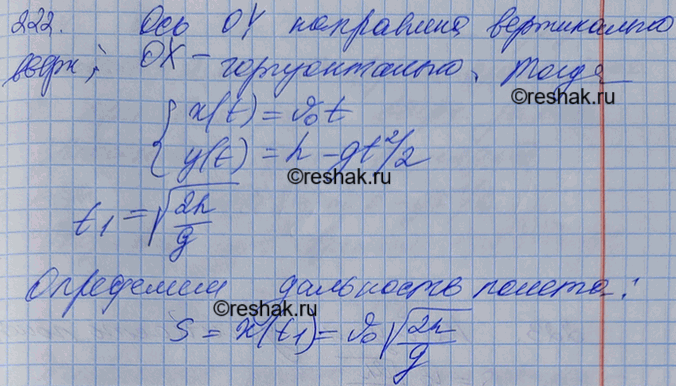 222. Ось OY направлена вертикально
вверх; OX – горизонтально. Тогда
©reshak.ru
x(t) = v₀t
y(t) = h – gt²/2
©reshak.ru
t₁ = √(2h/g)
Определим дальность полета:
©reshak.ru
S = x(t₁) = v₀√(2h/g)